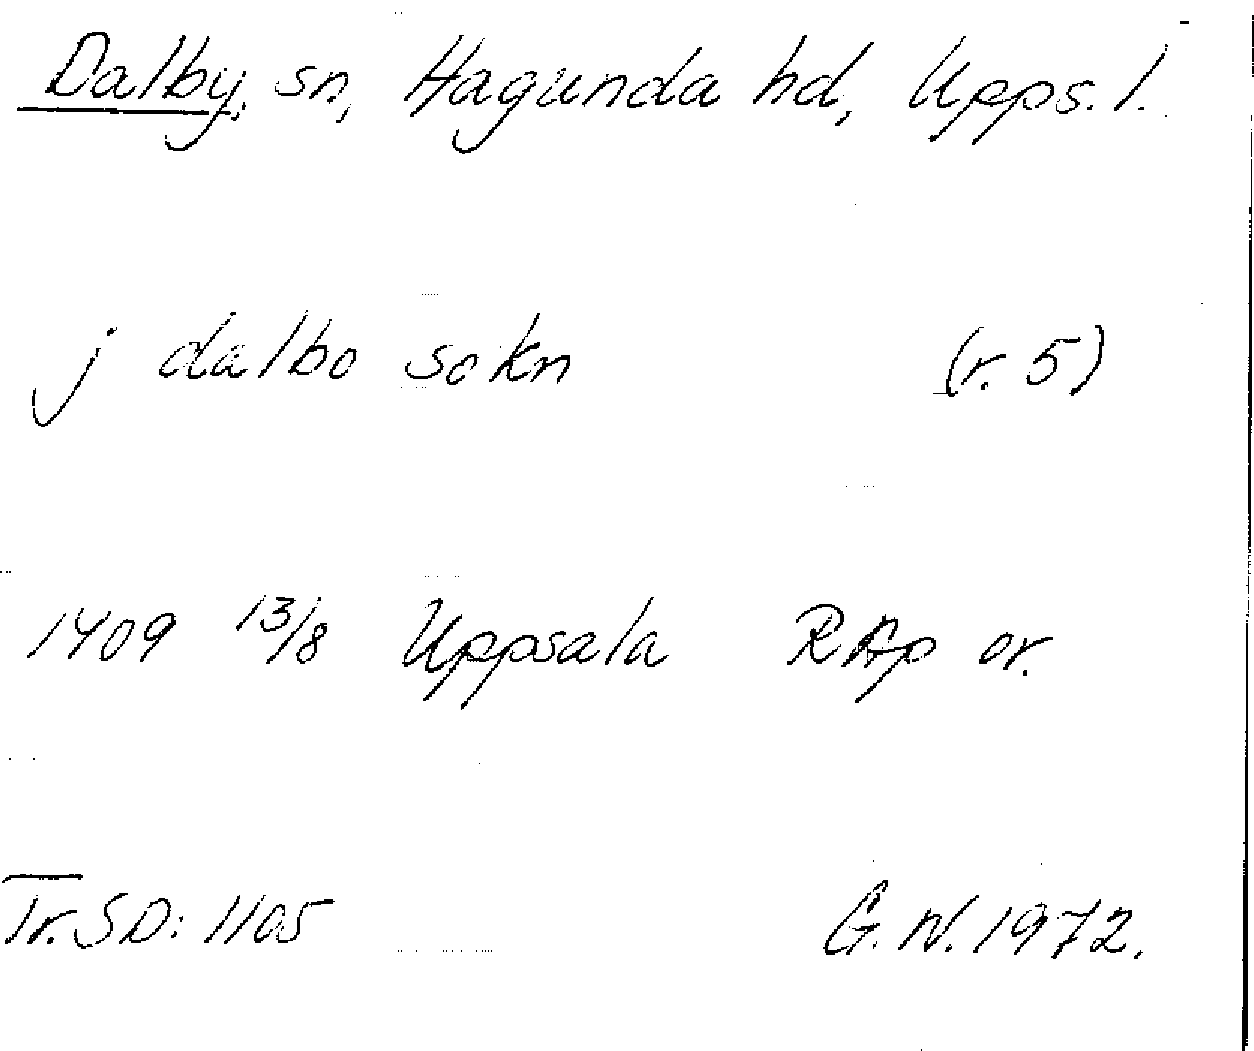 Dalby, sn, Hagunda hd, Upps. l.
j dalbo sokn (r. 5)
1409 13/8 Uppsala RAp or.
Tr. SD: 1105 G. N. 1972.